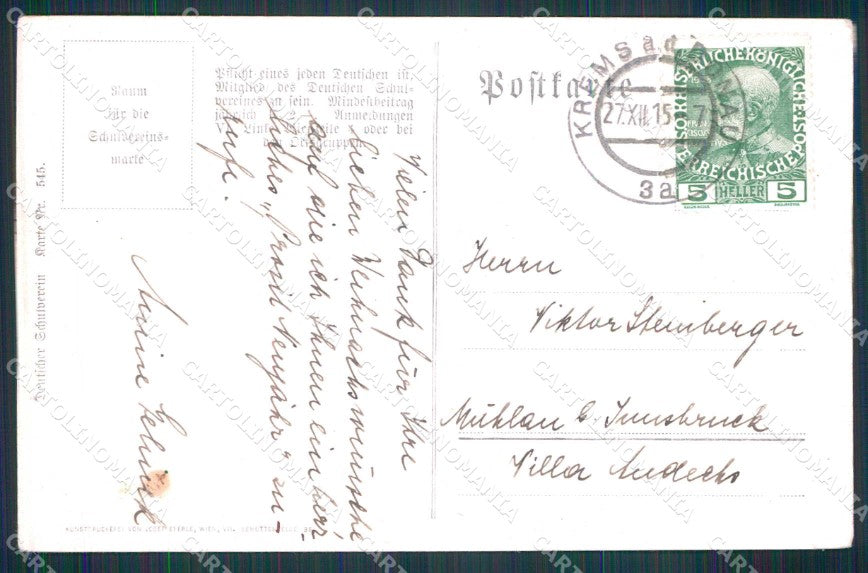 Raum
für die
Schulvereins-
marke
Pflicht eines jeden Deutschen ist,
Mitglied des Deutschen Schul-
vereines zu sein. Mindestbeitrag
jährlich 2 Anmeldungen
oder bei
den Ortsgruppen
Deutscher Schulverein Karte Nr. 545.
Vielen Dank für Ihre
lieben Weihnachtswünsche
auf die ich Ihnen ein herz-
liches „Prosit Neujahr" zu-
rufe.
Postkarte
KREMS a.d. DONAU
27.XII.15
3a
KAISERLICHE KÖNIGLICHE
ÖSTERREICHISCHE POST
5 HELLER 5
Herrn
Viktor Steinberger
Mühlau b. Innsbruck
Villa Andechs
KUNSTDRUCKEREI VON JOSEF EBERLE, WIEN, VII., SCHOTTENFELDG. 38
CARTOLINOMANIA